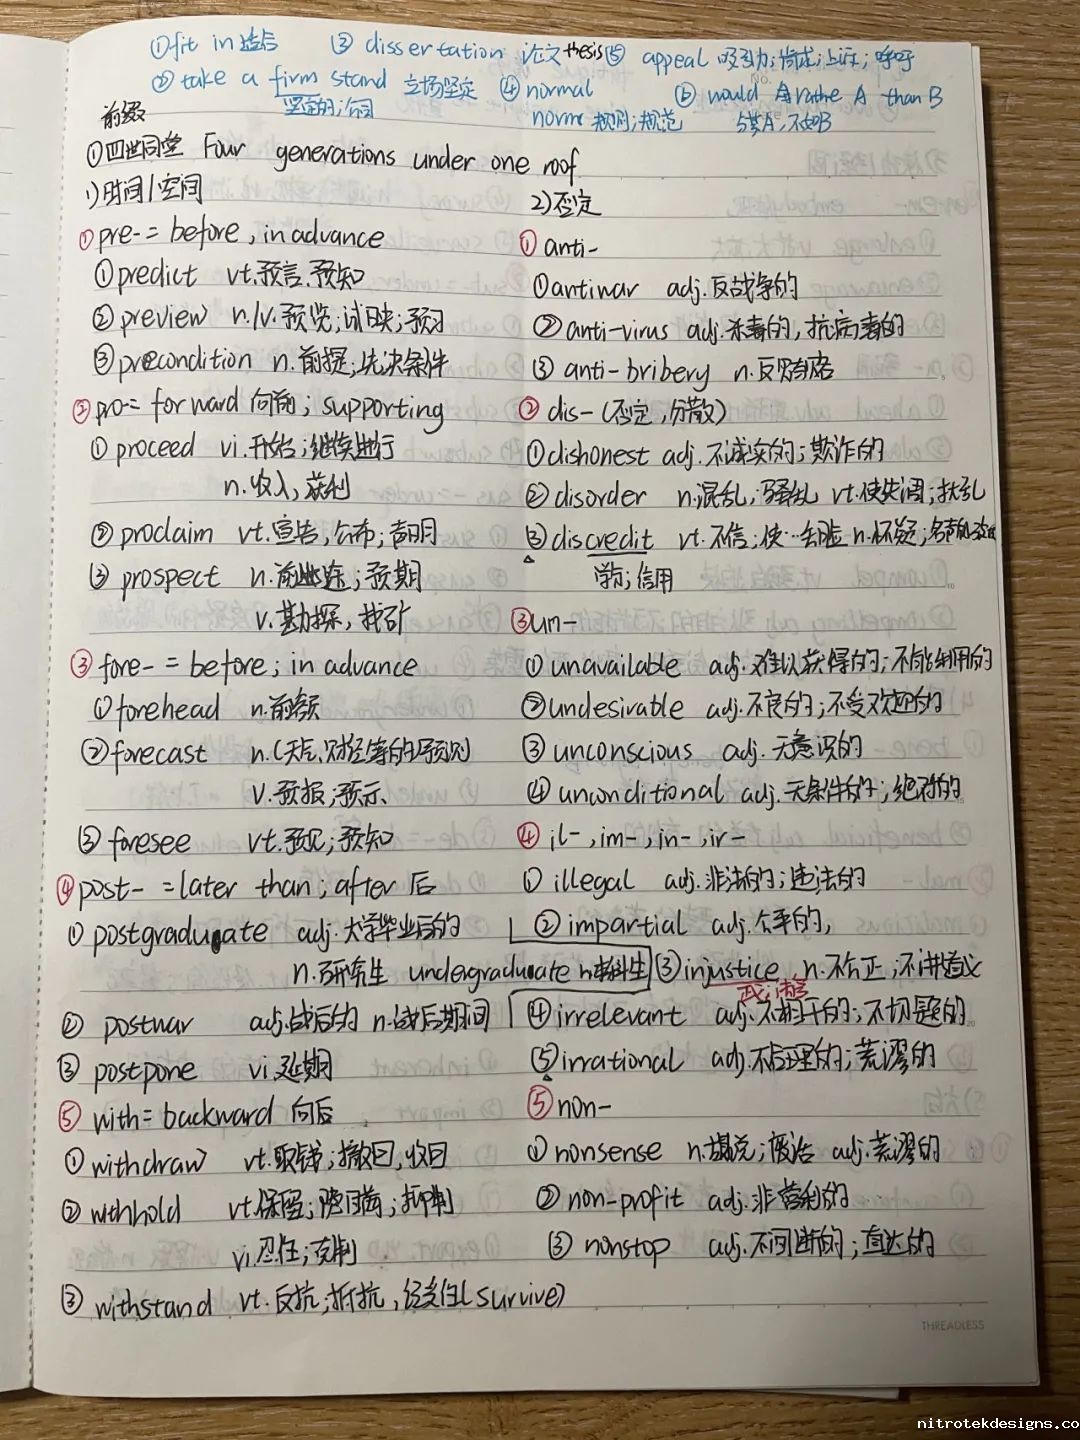 ①fit in 适合 ③ dissertation 论文 thesis ⑤ appeal 吸引力;情求;上诉;呼吁
② take a firm stand 立场坚定 ④ normal ⑥ would rathe A than B
坚定的;公司 norm 规则;规范 与其A,不如B
前缀
①四世同堂 Four generations under one roof
1)时间/空间
① pre- = before , in advance
①predict vt.预言.预知
② preview n./v.预览;试映;预习
③ precondition n.前提;先决条件
② pro- = forward 向前; supporting
① proceed vi.开始;继续进行
n.收入,获利
② proclaim vt.宣告,公布;声明
③ prospect n.前途;预期
v.勘探,找矿
③ fore- = before; in advance
①forehead n.前额
②forecast n.(天气.财经等的)预测
v.预报;预示
③ foresee vt.预见;预知
④ post- = later than ; after 后
① postgraduate adj.大学毕业后的
n.研究生 undergraduate n.本科生
② postwar adj.战后的 n.战后期间
③ postpone vi.延期
⑤ with = backward 向后
① withdraw vt.取钱;撤回,收回
② withhold vt.保留;隐瞒;抑制
vi.忍住;克制
③ withstand vt.反抗;抵抗,经受住(survive)
2)否定
① anti-
①antiwar adj.反战争的
② anti-virus adj.杀毒的,抗病毒的
③ anti-bribery n.反贿赂
② dis-(否定,分散)
①dishonest adj.不诚实的;欺诈的
② disorder n.混乱;骚乱 vt.使失调;扰乱
③ discredit vt.不信;使…丢脸 n.怀疑;
学分;信用
③un-
① unavailable adj.难以获得的;不能利用的
②undesirable adj.不良的;不受欢迎的
③ unconscious adj.无意识的
④ unconditional adj.无条件的;绝对的
④ il- , im- , in- , ir-
① illegal adj.非法的;违法的
② impartial adj.公平的,
③ injustice n.不公正;不讲道义
④ irrelevant adj.不相干的;不切题的
⑤ irrational adj.不合理的;荒谬的
⑤ non-
① nonsense n.胡说;废话 adj.荒谬的
② non-profit adj.非营利的
③ nonstop adj.不间断的;直达的
THREADLESS
nitrotekdesigns.co